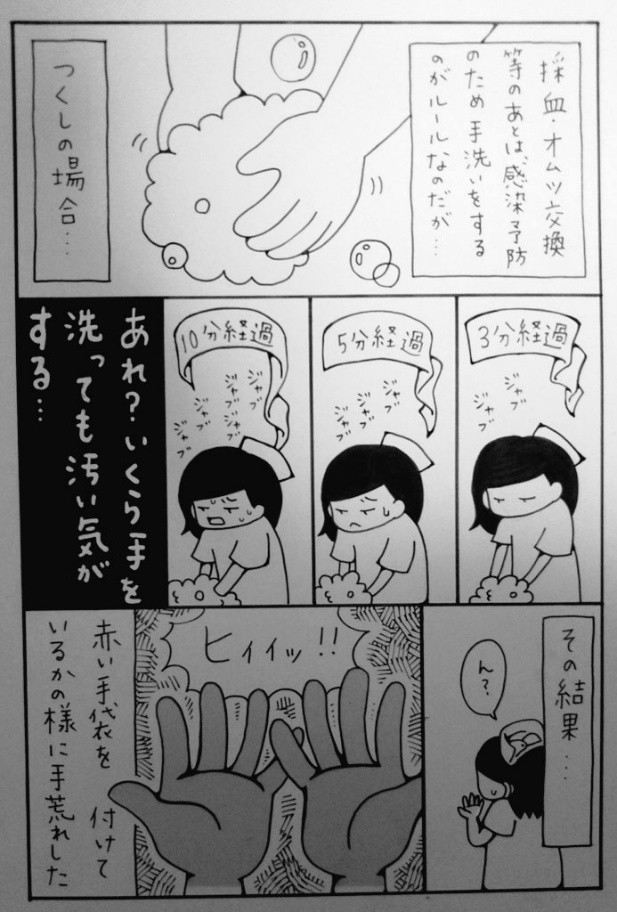 採血・オムツ交換
等のあとは、感染予防
のため手洗いをする
のがルールなのだが…
つくしの場合…
3分経過
ジャブ
ジャブ
5分経過
ジャブ
ジャブ
ジャブ
10分経過
ジャブ
ジャブ
ジャブ
ジャブ
ジャブ
あれ?いくら手を
洗っても汚い気が
する…
その結果…
ん?
ヒィィッ!!
赤い手袋を
付けて
いるかの様に手荒れした